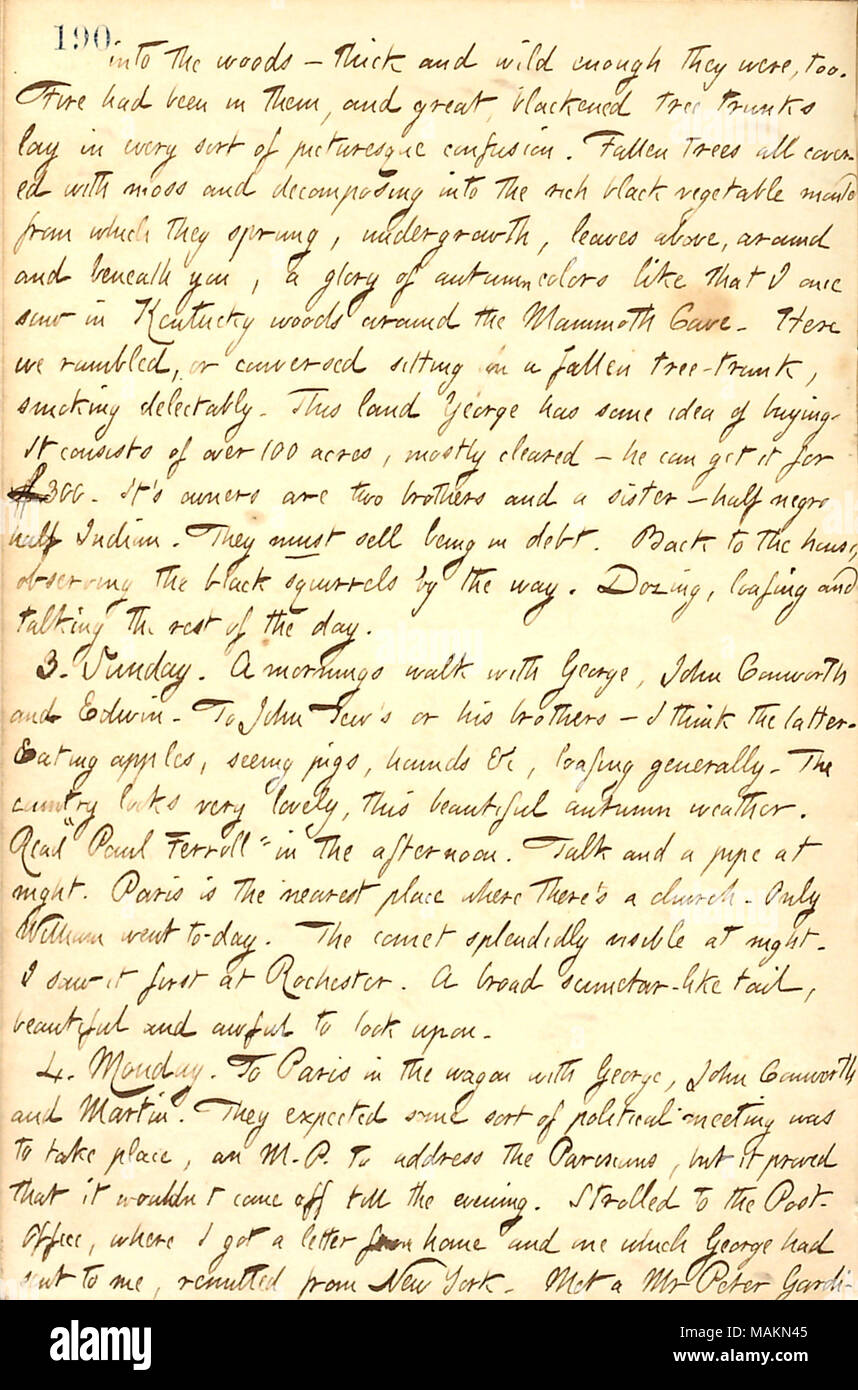 190
into the woods — thick and wild enough they were, too.
Fire had been in them, and great, blackened tree trunks
lay in every sort of picturesque confusion. Fallen trees all cover-
ed with moss and decomposing into the rich black vegetable mould
from which they sprung, undergrowth, leaves above, around
and beneath you, a glory of autumn colors like that I once
saw in Kentucky woods around the Mammoth Cave. Here
we rambled, or conversed sitting on a fallen tree-trunk,
smoking delectably. This land George has some idea of buying.
It consists of over 100 acres, mostly cleared — he can get it for
300. It's owners are two brothers and a sister — half negro
half Indian. They must sell being in debt. Back to the house,
observing the black squirrels by the way. Dozing, loafing and
talking the rest of the day.
3. Sunday. A mornings walk with George, John Conworth
and Edwin. To John 's or his brothers — I think the latter.
Eating apples, seeing pigs, hounds &c, loafing generally. The
country looks very lovely, this beautiful autumn weather.
Read "Paul Ferroll" in the afternoon. Talk and a pipe at
night. Paris is the nearest place where there's a church. Only
William went to-day. The comet splendidly visible at night.
I saw it first at Rochester. A broad scimetar-like tail,
beautiful and awful to look upon.
4. Monday. To Paris in the wagon with George, John Conworth
and Martin. They expected some sort of political meeting was
to take place, an M.P. to address the Parisians, but it proved
that it wouldn't come off till the evening. Strolled to the Post-
Office, where I got a letter from home and one which George had
sent to me, remitted from New York. Met a Mr Peter Gardi-
alamy
Image ID: MAKN45
www.alamy.com